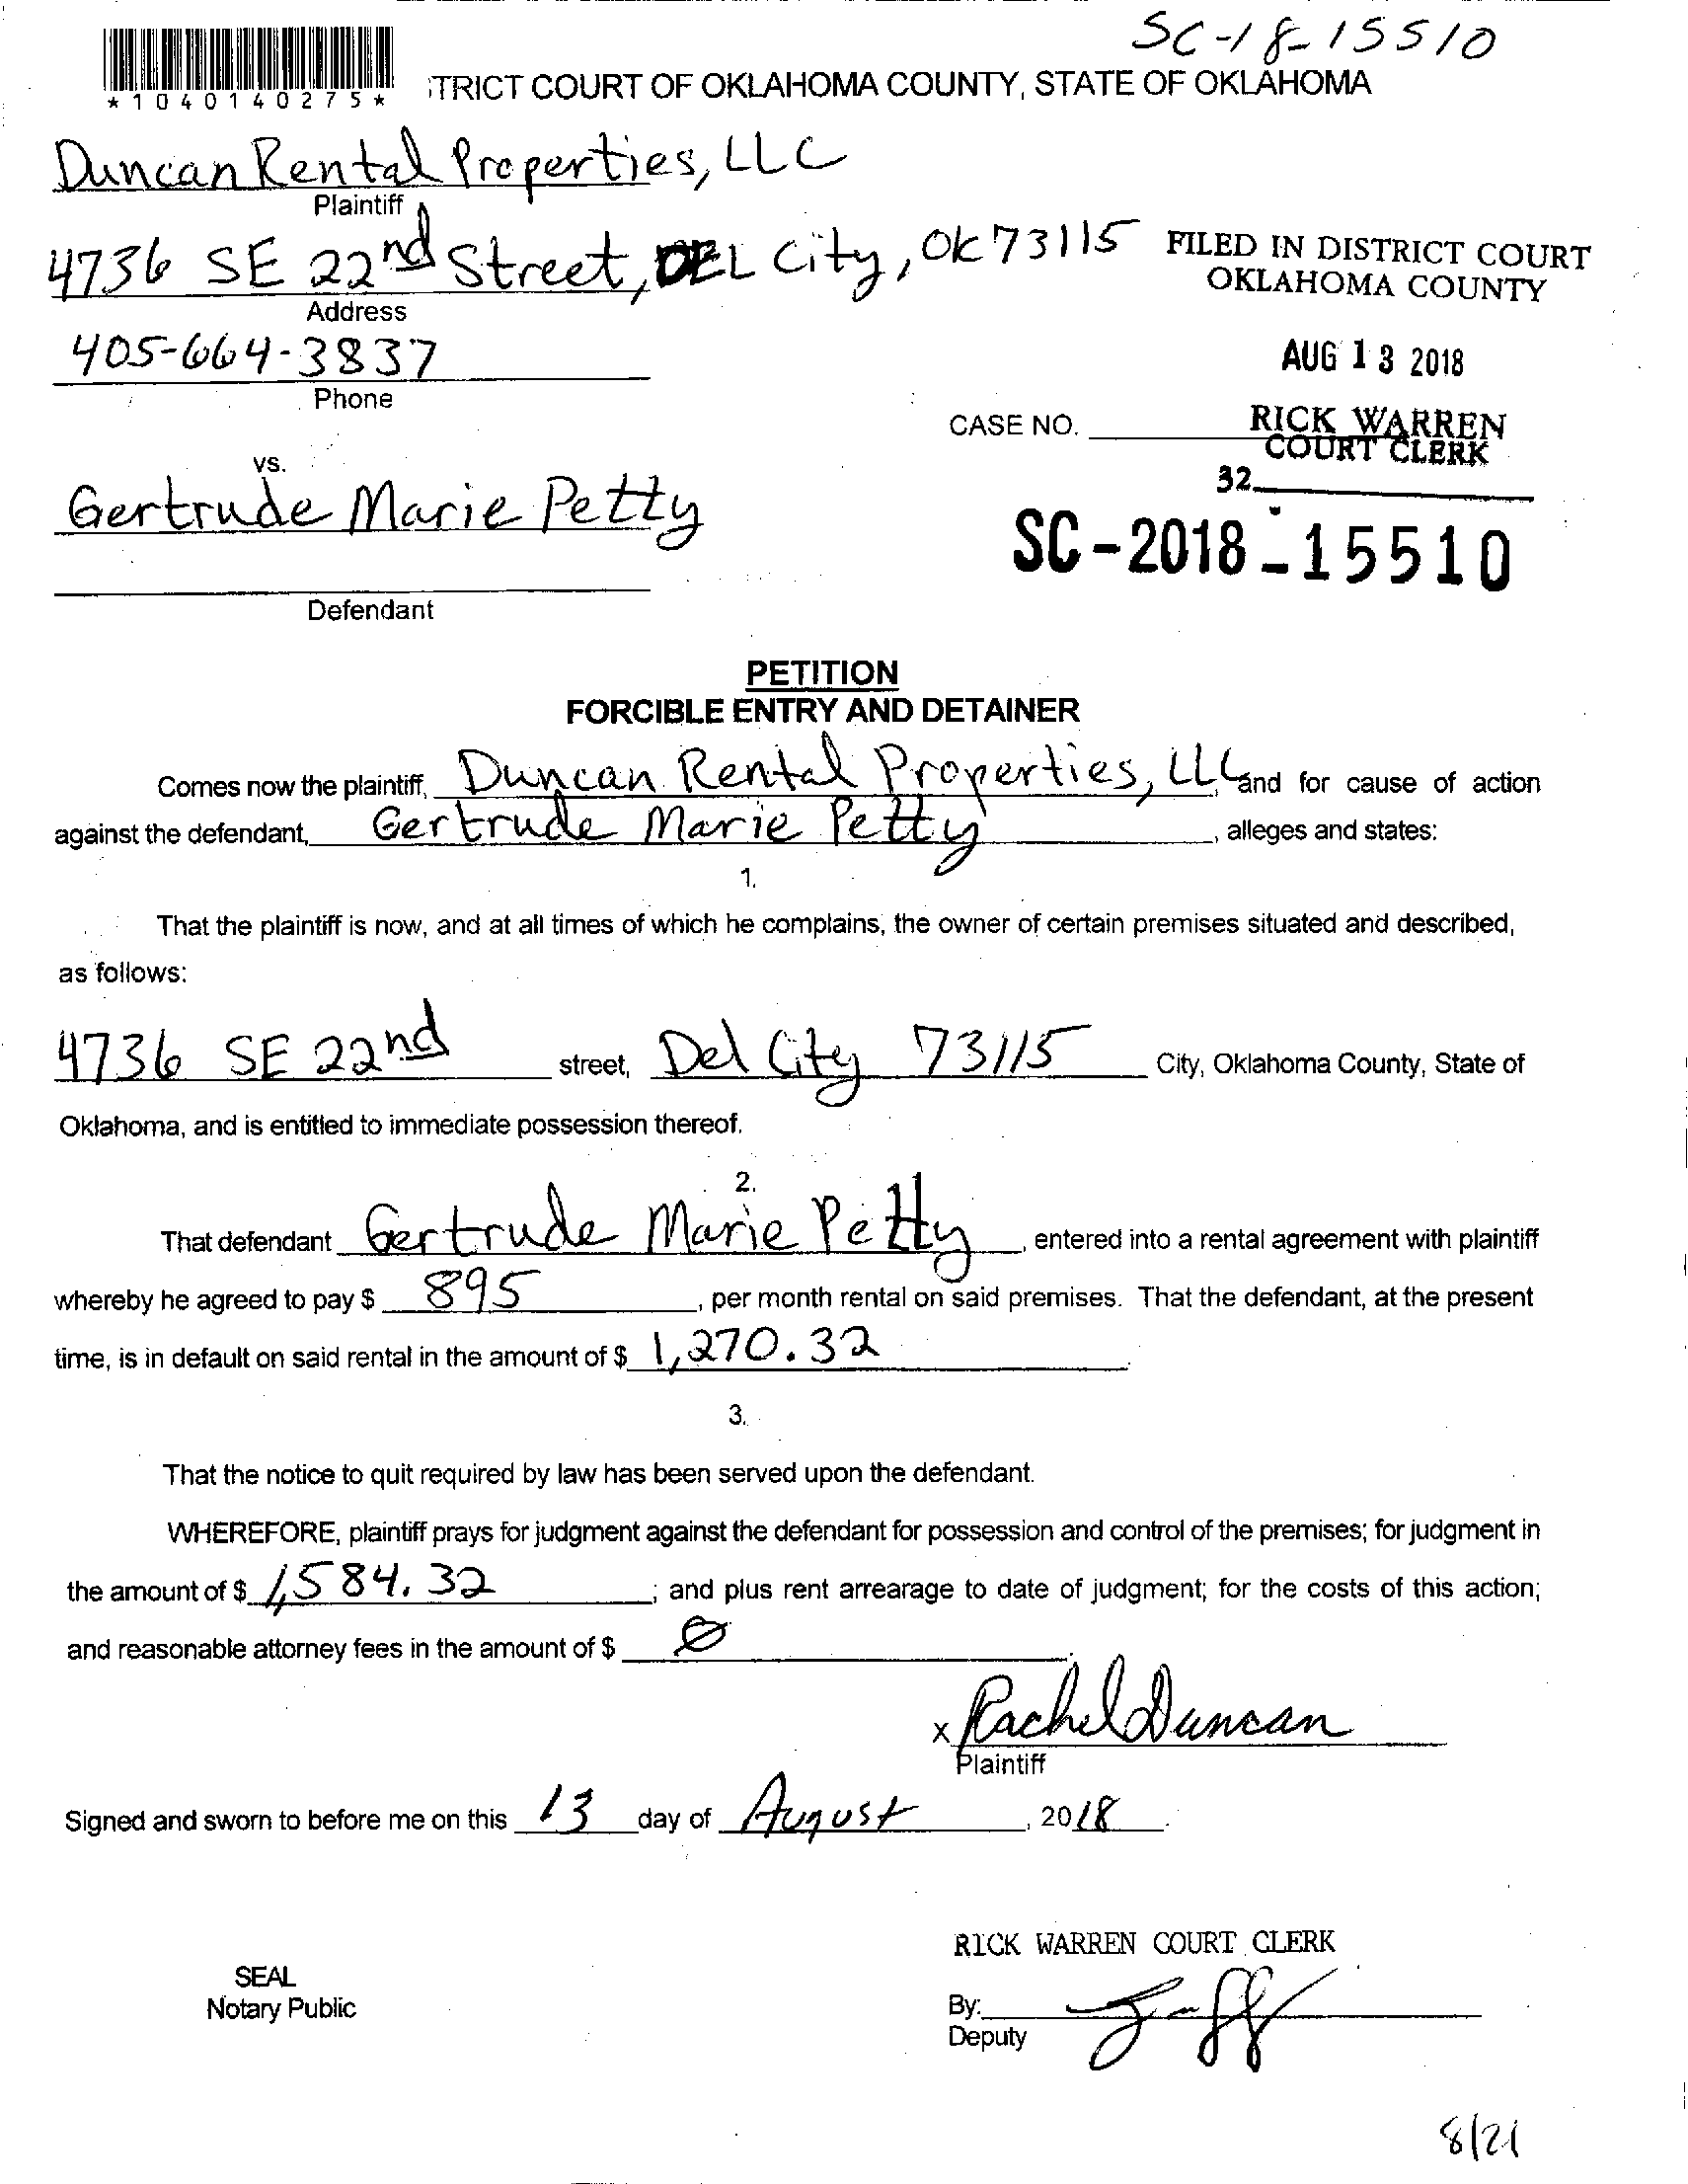 SC-18-15510
*1040140275*
TRICT COURT OF OKLAHOMA COUNTY, STATE OF OKLAHOMA
Duncan Rental Properties, LLC
Plaintiff
4736 SE 22nd Street, DEL City, OK 73115
FILED IN DISTRICT COURT
OKLAHOMA COUNTY
Address
405-664-3837
AUG 13 2018
Phone
CASE NO.
RICK WARREN
COURT CLERK
vs.
32
Gertrude Marie Petty
SC-2018-15510
Defendant
PETITION
FORCIBLE ENTRY AND DETAINER
Comes now the plaintiff, Duncan Rental Properties, LLC, and for cause of action
against the defendant, Gertrude Marie Petty, alleges and states:
1.
That the plaintiff is now, and at all times of which he complains, the owner of certain premises situated and described,
as follows:
4736 SE 22nd street, Del City 73115 City, Oklahoma County, State of
Oklahoma, and is entitled to immediate possession thereof.
2.
That defendant Gertrude Marie Petty, entered into a rental agreement with plaintiff
whereby he agreed to pay $ 895, per month rental on said premises. That the defendant, at the present
time, is in default on said rental in the amount of $ 1,270.32.
3.
That the notice to quit required by law has been served upon the defendant.
WHEREFORE, plaintiff prays for judgment against the defendant for possession and control of the premises; for judgment in
the amount of $ 1,584.32; and plus rent arrearage to date of judgment; for the costs of this action;
and reasonable attorney fees in the amount of $ Ø.
x Rachel Duncan
Plaintiff
Signed and sworn to before me on this 13 day of August, 2018.
RICK WARREN COURT CLERK
SEAL
Notary Public
By:
Deputy
8/21